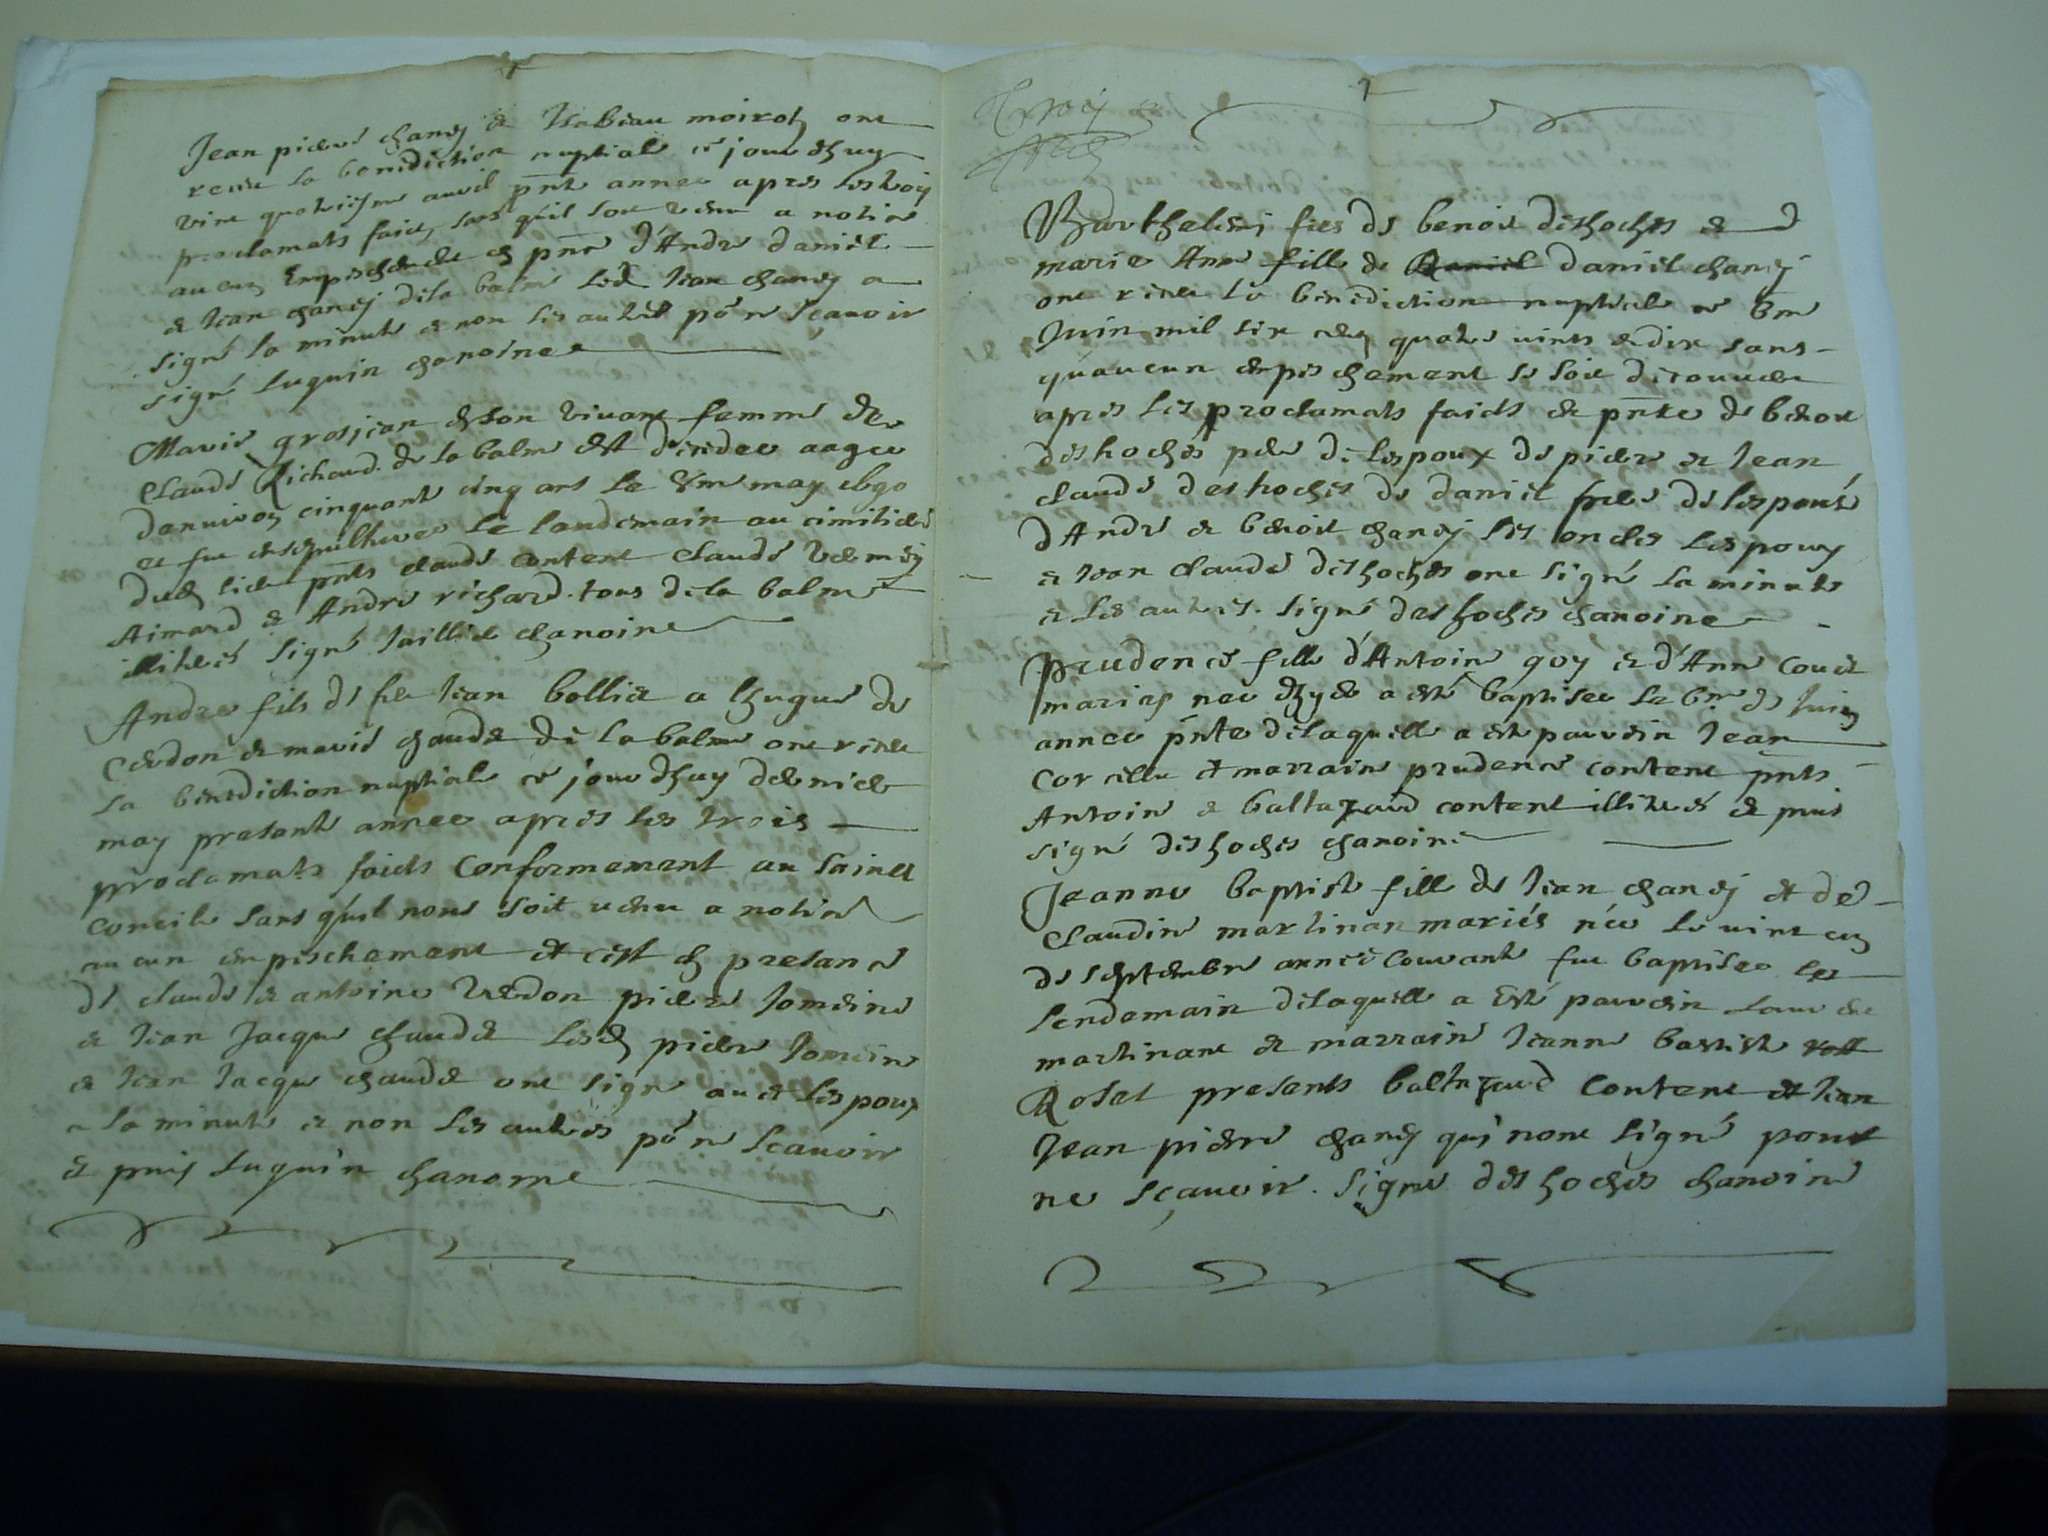 Jean pierre chanej & Isabeau moiroz ont
receu la benediction nuptiale ce jourdhuy
vint quatriesme auril pnte annee apres les trois
proclamats faicts sans quil soit venu a notice
aucun Empeschement en pnce d'Andre daniel
& Jean chanej de la balme led Jean chanej a
signé la minute & non les autres por ne scauoir
signé Luquin chanoine
Marie grosjean en son viuant femme de
claude Richard de la balme est decedee aagee
denuiron cinquante cinq ans le may
et fut ensepulturee le landemain au cimitiere
dud lieu pnts claude content claude
Aimard & Andre richard tous de la balme
illiterés signé chanoine
Andre fils de feu Jean bolliet a hugue de
Cerdon & marie chaudet de la balme ont receu
la benediction nuptiale ce jourdhuy dernier
may presente annee apres les trois
proclamats faicts conformement au sainct
concile sans quil nous soit uenu a notice
aucun empeschement et cest en presance
de claude & antoine verdon pierre Jomein
& Jean Jacque chaudet lesd pierre Jomein
& Jean Jacque chaudet ont signe auec lespoux
la minute & non les autres por ne scauoir
& puis Luquin chanoine
Barthelemj fils de benoit deshoches &
marie Anne fille de daniel chanej
ont receu la benediction nuptiale ce 6me
Juin mil six cens quatre uints & dix sans
quaucun empeschement se soit decouuert
apres les proclamats faicts & pnce de benoit
deshoches pere de lespoux de pierre & Jean
claude deshoches de daniel pere de lespouse
d'Andre & benoit chanej ses oncles lespoux
& Jean claude deshoches ont signé la minute
& les autres. signé deshoches chanoine
Prudence fille d'Antoine goy & d'Anne
mariés nee hyer a esté baptisee le 6me de Juin
annee pnte de laquelle a esté parrein Jean
et marraine prudence content pnts
Antoine & baltazard content illiterés & puis
signé deshoches chanoine
Jeanne baptiste fille de Jean chanej et de
Claudine martinan mariés née le uint
de septembre année courante fut baptisee le
lendemain de laquelle a esté parrein
martinant & marraine Jeanne baptiste
Roset presents baltazard content et Jean
Jean pierre chanej qui nont signé pour
ne sçauoir. Signé deshoches chanoine